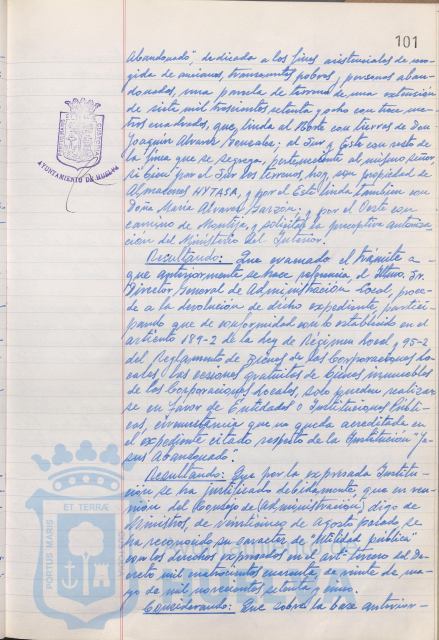 101
Abandonado", dedicada a los fines asistenciales de aco-
gida de ancianos, transeuntes pobres, y personas aban-
donadas, una parcela de terreno de una extensión
de siete mil trescientos setenta y ocho con trece me-
tros cuadrados, que linda al Norte con tierras de Don
Joaquín Alvarez; al Sur y Este con resto de
la finca que se segrega, perteneciente al mismo señor,
si bien por el Sur los terrenos hoy son propiedad de
Almacenes HYTASA, y por el Este linda también con
Doña María Alvarez Garzón; y por el Oeste con
camino de Montija, y solicita la preceptiva autoriza-
ción del Ministerio del Interior.
Resultando: Que evacuado el trámite a
que anteriormente se hace referencia, el Iltmo. Sr.
Director General de Administración Local, proce-
de a la devolución de dicho expediente, partici-
pando que de conformidad con lo establecido en el
artículo 189-2 de la Ley de Régimen Local y 95-2
del Reglamento de Bienes de las Corporaciones Lo-
cales, las cesiones gratuitas de bienes inmuebles
de las Corporaciones Locales, solo pueden realizar-
se en favor de Entidades o Instituciones Públi-
cas, circunstancia que no queda acreditada en
el expediente citado respecto de la Institución "Je-
sus Abandonado".
Resultando: Que por la expresada Institu-
ción se ha justificado debidamente, que en reu-
nión del Consejo de (Administración), digo de
Ministros, de veintiuno de Agosto pasado, se
ha reconocido su carácter de "Utilidad Pública"
con los derechos expresados en el artº tercero del De-
creto mil cuatrocientos cuarenta, de veinte de ma-
yo de mil novecientos setenta y cinco.
Considerando: Que sobre la base anterior-
AYUNTAMIENTO DE HUELVA
PORTUS MARIS
ET TERRAE